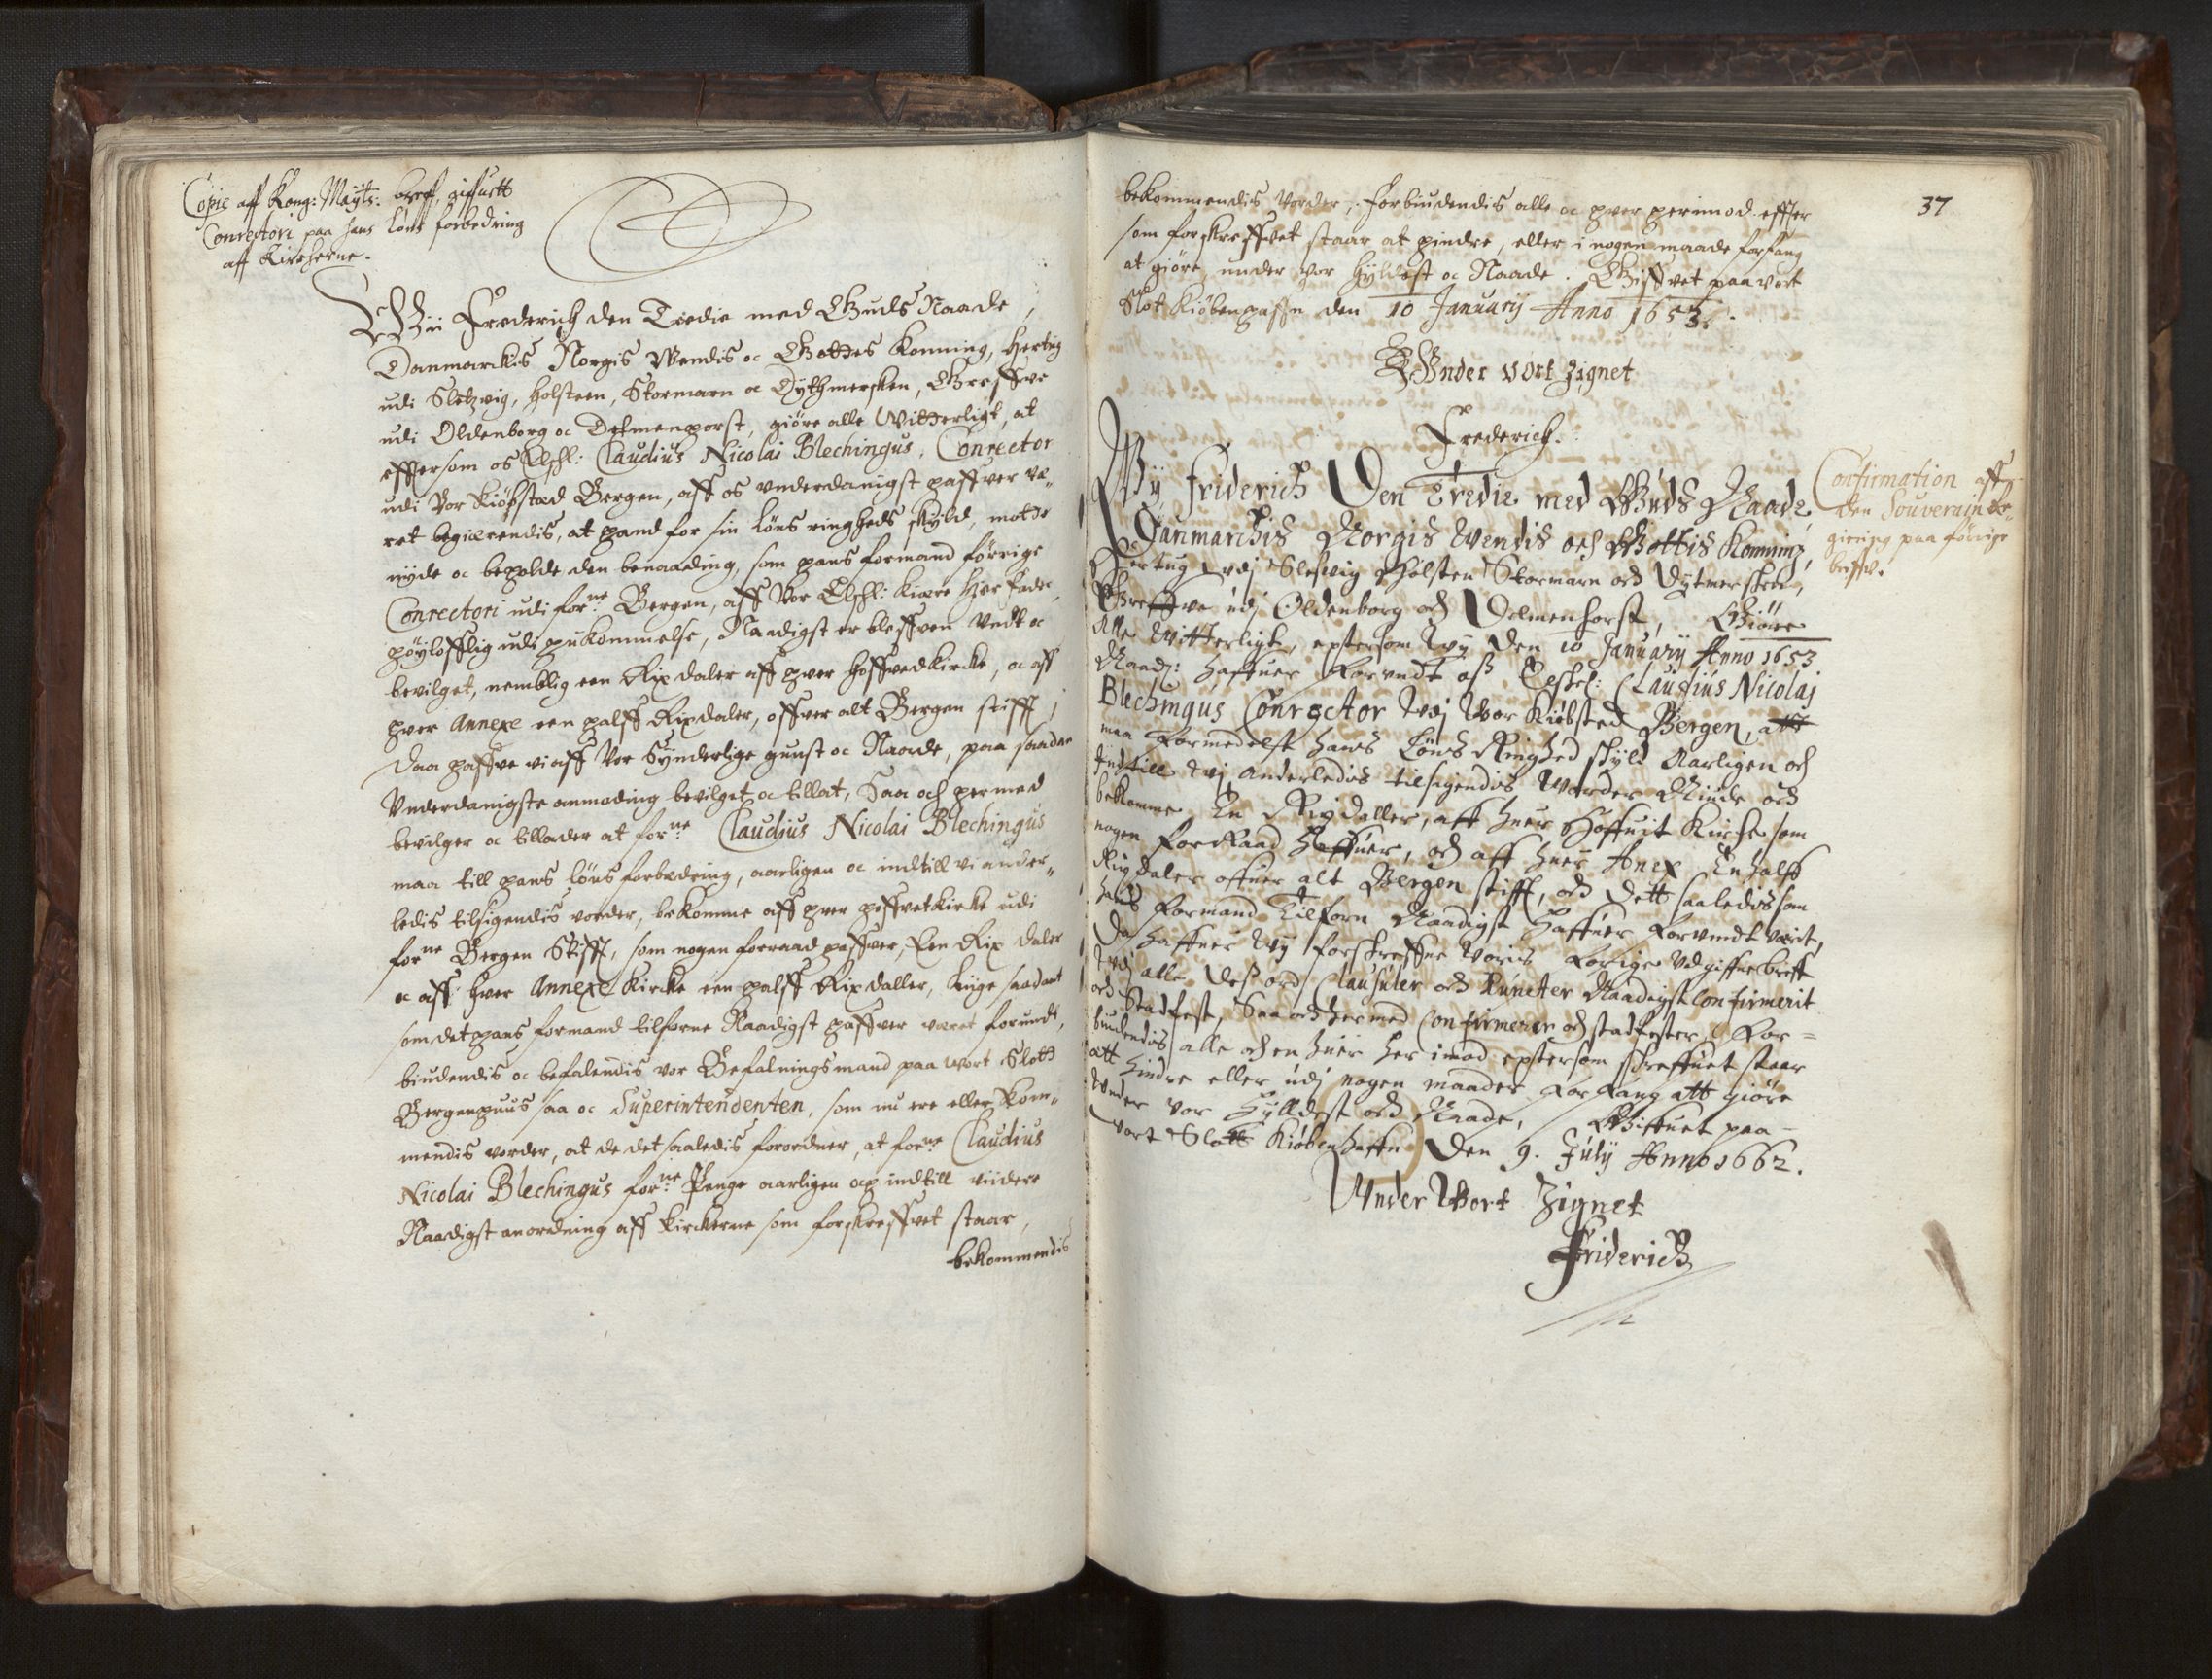 Copie aff Kong: Mayts: breff, giffuett
Conrectori paa hans löns forbedring
aff Kircherne.
Wii Frederich den Tredie med Guds Naade,
Danmarckis Norgis Wendis oc Gottes Konning, Hertug
udi Sletzvig, Holsteen, Stormarn oc Dythmersken, Greffve
udi Oldenborg oc Delmenhorst, giöre alle Witterligt, at
effterson os Elskl: Claudius Nicolai Blechingus, Conrector
udi Vor Kiöbsted Bergen, aff os underdanigst haffver væ„
ret begierendis, at hand for sin löns ringheds skyld, motte
nyde oc beholde den benaading, som hans formand förrige
Conrectori udi forne: Bergen, aff Vor Elskl: Kiære Her Fader,
höylofflig udi hukommelse, Naadigst er bleffven Undt oc
bevilget, nemblig een Rixdaler aff hver Hoffvedkircke, oc aff
hver Annexe een halff Rixdaler, offver alt Bergen stifft;
Daa haffve vi aff Vor Synderlige gunst oc Naade, paa saadan
Underdanigste anmoding bevilget oc tillat, Saa och hermed
bevilger oc tillader at forne: Claudius Nicolai Blechingus
maa till hans löns forbedring, aarligen oc indtill vi ander„
ledis tilsigendis vorder, bekomme aff hver hoffvetkircke udi
forne Bergen Stifft, som nogen forraad haffver, Een Rix daler
oc aff hver Annexe Kircke een halff Rixdaller, liige saadant
som det hans formand tilforne Naadigst haffver været forundt,
biudendis oc befalendis vor Befalningsmand paa wort Slott
Bergenhuus saa oc Superintendenten, som nu ere eller kom„
mendis vorder, at de det saaledis forordner, at forne: Claudius
Nicolai Blechingus forne: Penge aarligen och indtill viidere
Naadigst anordning aff Kirckerne som forskreffvet staar,
bekommendis
37
bekommendis vorder, Forbiudendis alle oc hver herimod effter
som forskreffvet staar at hindre, eller i nogen maade forfang
at giöre, under vor Hyldest oc Naade. Giffvet paa vort
Slot Kiöbenhaffn den 10 January Anno 1653.
Under vort Zignet
Frederich.
Wy Friderich Den Tredie med Guds Naade
Danmarchis Norgis Wendis och Gottis Konning,
Hertug udj Slesvig Holsten Stormarn och Dytmersken,
Greffve udj Oldenborg och Delmenhorst, Giöre
Alle Witterligt, eptersom Wy den 10 January Anno 1653
Naad: haffuer Forundt oß Elskel: Claudius Nicolaj
Blechingus Conrector udj Vor Kiöbsted Bergen, att
maa formedelst hans Löns Ringhed skyld Aarligen och
Indtill vj anderledis tilsigendis Worder Niude och
bekomme En Rixdaller, aff huer Hoffuit Kirche som
nogen ForRaad haffuer, och aff huer Anex En halff
Rixdaler offuer alt Bergen stifft, och dett saaledis som
hans Formand Tilforn Naadigst haffuer Forundt værit,
Da haffuer Wy forskreffne Voris Forige Udgiffne breff
udj alle dess ord Clausuler och Puncter Naadigst Confirmerit
och Stadfest, Saa och hermed Confirmerer och stadfester, For=
biudendis alle och en huer her imod eptersom skreffuet staar
att hindre eller udj nogen maade ForFang att giöre
Under Vor Hylldest och Naade, Giffuet paa
Vort Slott Kiöbenhaffn Den 9. July Anno 1662.
Under Vort Zignet
Friderich
Confirmation aff
den Souverain Re„
giering paa förrige
breffv.